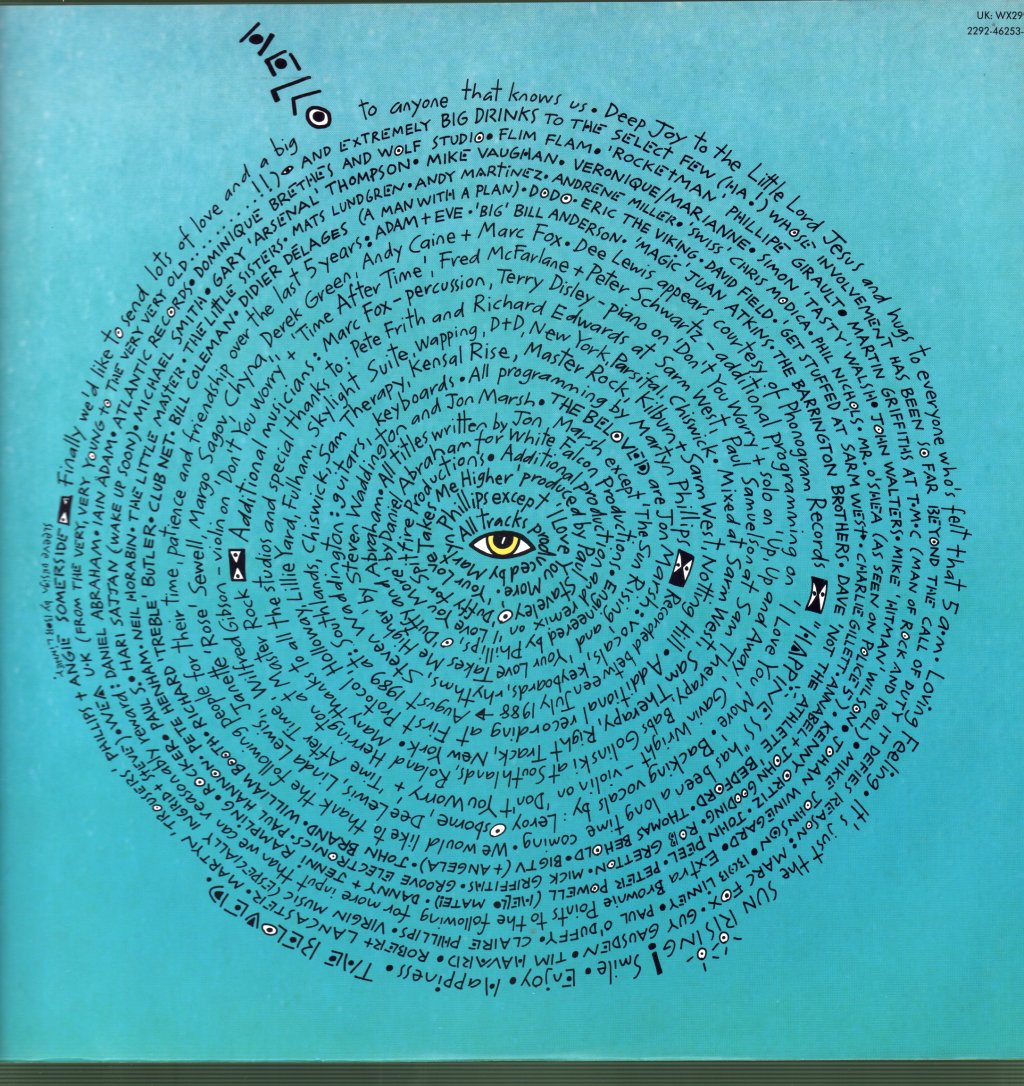 UK: WX29
2292-46253-
All tracks produced by Martyn Phillips except 'I Love You More'
Paul Staveley O'Duffy
'Your Love Takes Me Higher' produced by
Spitfire Productions • Additional production and remix on 'Your Love Takes Me Higher' by Daniel Abraham for White Falcon Productions • Engineered by
Steven Waddington and Jon Marsh
All titles written by Jon Marsh except 'The Sun Rising'
THE BELOVED are Jon Marsh: vocals, keyboards, rhythms
Steve Waddington: guitars, keyboards • All programming by Martyn Phillips
Recorded between July 1988 → August 1989 at: Southlands, Chiswick, Sam Therapy, Kensal Rise, Master Rock, Kilburn + Sarm West, Notting Hill • Additional recording at First Protocol, Holloway, Lillie Yard, Fulham, Skylight Suite, Wapping, D+D, New York, Parsifal, Chiswick • Mixed at Sarm West, Sam Therapy, Southlands, Right Track, New York
Thanks to all the studios and special thanks to: Pete Frith and Richard Edwards at Sam Therapy, Babs Golinski at Southlands, Roland Herrington at Master Rock
Additional musicians: Marc Fox - percussion, Terry Disley - piano on 'Don't You Worry' + solo on 'Up, Up and Away', Gavin Wright - violin on 'Don't You Worry' + 'Time After Time', Wilfred Gibson - violin on 'Don't You Worry' + 'Time After Time', Fred McFarlane + Peter Schwartz - additional programming on 'I Love You More'
Backing vocals by: Leroy Osborne, Dee Lewis, Linda Lewis, Janette Sewell, Margo Sagov, Chyna, Derek Green, Andy Caine + Marc Fox • Dee Lewis appears courtesy of Phonogram Records
"HAPPINESS" has been a long time coming • We would like to thank the following people for their time, patience and friendship over the last 5 years: ADAM + EVE • 'BIG' BILL ANDERSON • 'MAGIC' JUAN ATKINS • THE BARRINGTON BROTHERS • NOT THE ANNABEL + JOHN BEDFORD • THOMAS BEHOLD • BIGTV (+ ANGELA) • JOHN BRAND • WILLIAM BOOTH • RICHARD 'TREBLE' BUTLER • CLUB NET • BILL COLEMAN • DIDIER DÉLAGES (A MAN WITH A PLAN) • DODO • ERIC THE VIKING • DAVID FIELD • GET STUFFED AT SARM WEST • CHARLIE GILLETT • DAVE 'THE ATHLETE' • JOHN GOODING • ROB GRETTON • MICK GRIFFITHS • GROOVE ELECTRONI • PAUL HANNON • PETE HENHAM • NEIL HORABIN • THE LITTLE MASTER • THE LITTLE SISTERS • MATS LUNDGREN • ANDY MARTINEZ • ANDRENE MILLER • 'SWISS' CHRIS MODICA • PHIL NICHOLS • MR. O'SHEA (AS SEEN ON POLICE 5) • KENNY ORTIZ • JOHN PEEL • PETER POWELL (HELL) • DANNY + JENNI RAMPLING • ROCKER • PAUL S. • HARI SATJAN (WAKE UP SOON) • MICHAEL SMITH • GARY 'ARSENAL' THOMPSON • MIKE VAUGHAN • VERONIQUE/MARIANNE • SIMON 'TASTY' WALSH • JOHN WALTERS • MIKE 'HITMAN' WILSON • JOHAN WINEGARD
Extra Brownie Points to the following for more input than we can reasonably reward: DANIEL ABRAHAM • IAIN ADAM • ATLANTIC RECORDS • DOMINIQUE BRETHES AND WOLF STUDIO • FLIM FLAM • 'ROCKETMAN' PHILLIPE GIRAULT • MARTIN GRIFFITHS AT T•M•C (MAN OF ROCK AND ROLL) • MIKE JOHNSON • BOB LINNEY • PAUL O'DUFFY • CLAIRE PHILLIPS • VIRGIN MUSIC (ESPECIALLY INGRID + STEVE) • WEA U•K (FROM THE VERY, VERY YOUNG TO THE VERY VERY OLD.......!!) AND EXTREMELY BIG DRINKS TO THE SELECT FEW (HA!) WHOSE INVOLVEMENT HAS BEEN SO FAR BEYOND THE CALL OF DUTY IT DEFIES REASON: MARC FOX • GUY GAUSDEN • TIM HAVARD • ROBERT + LANCASTER • MARTIN 'TROUSERS' PHILLIPS + ANGIE SOMERSIDE
Finally we'd like to send lots of love and a big HELLO to anyone that knows us • Deep Joy to the Little Lord Jesus and hugs to everyone who's felt that 5 a.m. Loving Feeling • It's just the SUN RISING! Smile • Enjoy • Happiness • THE BELOVED